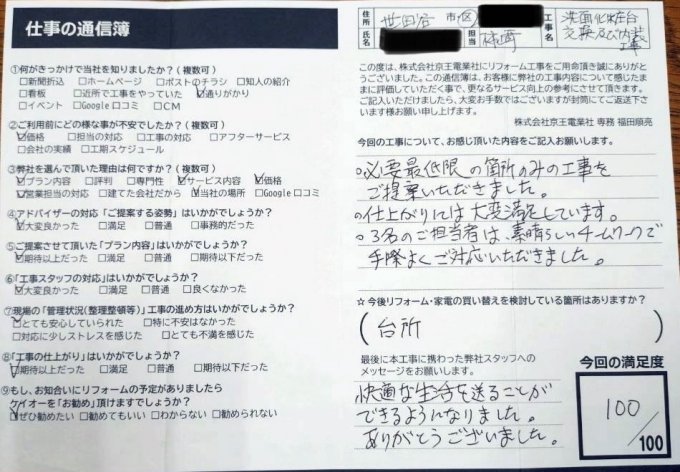 仕事の通信簿
①何がきっかけで当社を知りましたか？(複数可)
□新聞折込 □ホームページ □ポストのチラシ □知人の紹介
□看板 □近所で工事をやっていた ☑通りがかり
□イベント □Google口コミ □CM
②ご利用前にどの様な事が不安でしたか？(複数可)
☑価格 □担当の対応 □工事の対応 □アフターサービス
□会社の実績 □工期スケジュール
③弊社を選んで頂いた理由は何ですか？(複数可)
☑プラン内容 □評判 □専門性 ☑サービス内容 ☑価格
☑営業担当の対応 □建てた会社だから ☑当社の場所 □Google口コミ
④アドバイザーの対応「ご提案する姿勢」はいかがでしょうか？
☑大変良かった □満足 □普通 □事務的だった
⑤ご提案させて頂いた「プラン内容」はいかがでしょうか？
☑期待以上だった □満足 □普通 □期待以下だった
⑥「工事スタッフの対応」はいかがでしょうか？
☑大変良かった □満足 □普通 □良くなかった
⑦現場の「管理状況(整理整頓等)」工事の進め方はいかがでしょうか？
☑とても安心していられた □特に不安はなかった
□対応に少しストレスを感じた □とても不満を感じた
⑧「工事の仕上がり」はいかがでしょうか？
☑期待以上だった □満足 □普通 □期待以下だった
⑨もし、お知合いにリフォームの予定がありましたら
ケイオーを「お勧め」頂けますでしょうか？
☑ぜひ勧めたい □勧めてもいい □わからない □勧められない
住所 世田谷 市・区
氏名 担当
工事名 洗面化粧台
交換及び内装
工事
この度は、株式会社京王電業社にリフォーム工事をご用命頂き誠にありが
とうございました。この通信簿は、お客様に弊社の工事内容について感じたま
まに評価していただく事で、更なるサービス向上の参考にさせて頂きます。
ご記入いただけましたら、大変お手数ではございますが封筒にてご返送下さ
います様お願い申し上げます。
株式会社京王電業社 専務 福田順亮
今回の工事について、お感じ頂いた内容をご記入お願いします。
○必要最低限の箇所のみの工事を
ご提案いただきました。
○仕上がりには大変満足しています。
○3名のご担当者は、素晴らしいチームワークで
手際よくご対応いただきました。
☆今後リフォーム・家電の買い替えを検討している箇所はありますか？
(台所 )
最後に本工事に携わった弊社スタッフへの
メッセージをお願いします。
快適な生活を送ることが
できるようになりました。
ありがとうございました。
今回の満足度
100
/100